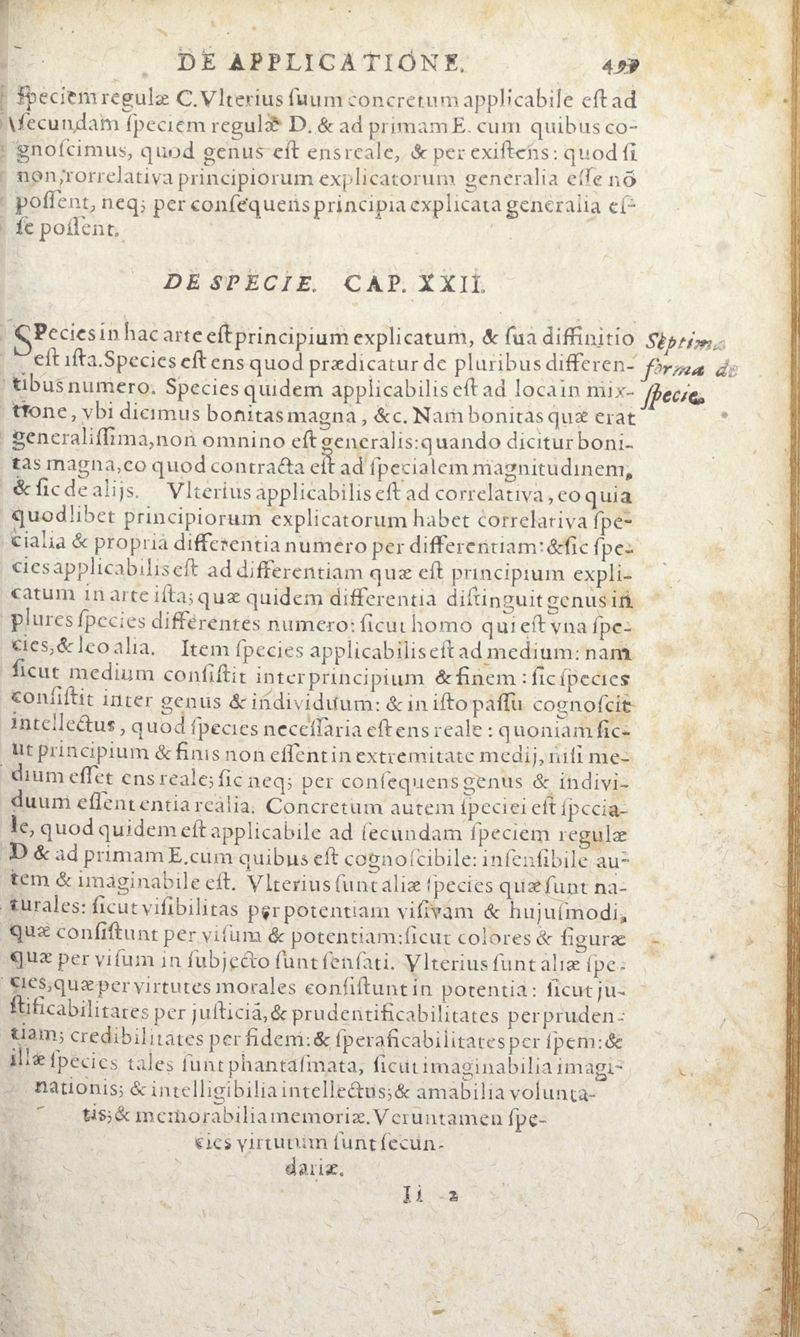 DE APPLICATIONE. 499
ſpeciem regulæ C. Vlterius ſuum concretum applicabile eſt ad
ſecundam ſpeciem regulæ D. & ad primam E. cum quibus co-
gnoſcimus, quod genus eſt ens reale, & per exiſtens: quod ſi
non, correlativa principiorum explicatorum generalia eſſe nõ
poſſent, neq; per conſequens principia explicata generalia eſ-
ſe poſſent.
DE SPECIE. CAP. XXII.
SPecies in hac arte eſt principium explicatum, & ſua diffinitio
eſt iſta. Species eſt ens quod prædicatur de pluribus differen-
tibus numero. Species quidem applicabilis eſt ad loca in mix-
tione, vbi dicimus bonitas magna, &c. Nam bonitas quæ erat
generaliſſima, non omnino eſt generalis: quando dicitur boni-
tas magna, eo quod contracta eſt ad ſpecialem magnitudinem,
& ſic de alijs. Vlterius applicabilis eſt ad correlativa, eo quia
quodlibet principiorum explicatorum habet correlativa ſpe-
cialia & propria differentia numero per differentiam: & ſic ſpe-
cies applicabilis eſt ad differentiam quæ eſt principium expli-
catum in arte iſta; quæ quidem differentia diſtinguit genus in
plures ſpecies differentes numero: ſicut homo qui eſt vna ſpe-
cies, & leo alia. Item ſpecies applicabilis eſt ad medium: nam
ſicut medium conſiſtit inter principium & finem: ſic ſpecies
conſiſtit inter genus & individuum: & in iſto paſſu cognoſcit
intellectus, quod ſpecies neceſſaria eſt ens reale: quoniam ſic-
ut principium & finis non eſſent in extremitate medij, niſi me-
dium eſſet ens reale; ſic neq; per conſequens genus & indivi-
duum eſſent entia realia. Concretum autem ſpeciei eſt ſpecia-
le, quod quidem eſt applicabile ad ſecundam ſpeciem regulæ
D & ad primam E. cum quibus eſt cognoſcibile: inſenſibile au-
tem & imaginabile eſt. Vlterius ſunt aliæ ſpecies quæ ſunt na-
turales: ſicut viſibilitas per potentiam viſivam & hujuſmodi,
quæ conſiſtunt per viſum & potentiam: ſicut colores & figuræ
quæ per viſum in ſubjecto ſunt ſenſati. Vlterius ſunt aliæ ſpe-
cies, quæ per virtutes morales conſiſtunt in potentia: ſicut ju-
ſtificabilitates per juſticiã, & prudentificabilitates per pruden-
tiam; credibilitates per fidem: & ſperaficabilitates per ſpem: &
illæ ſpecies tales ſunt phantaſmata, ſicut imaginabilia imagi-
nationis; & intelligibilia intellectus; & amabilia volunta-
tis; & memorabilia memoriæ. Veruntamen ſpe-
cies virtutum ſunt ſecun-
dariæ.
Septima
forma de
ſpecie.
Ii 2